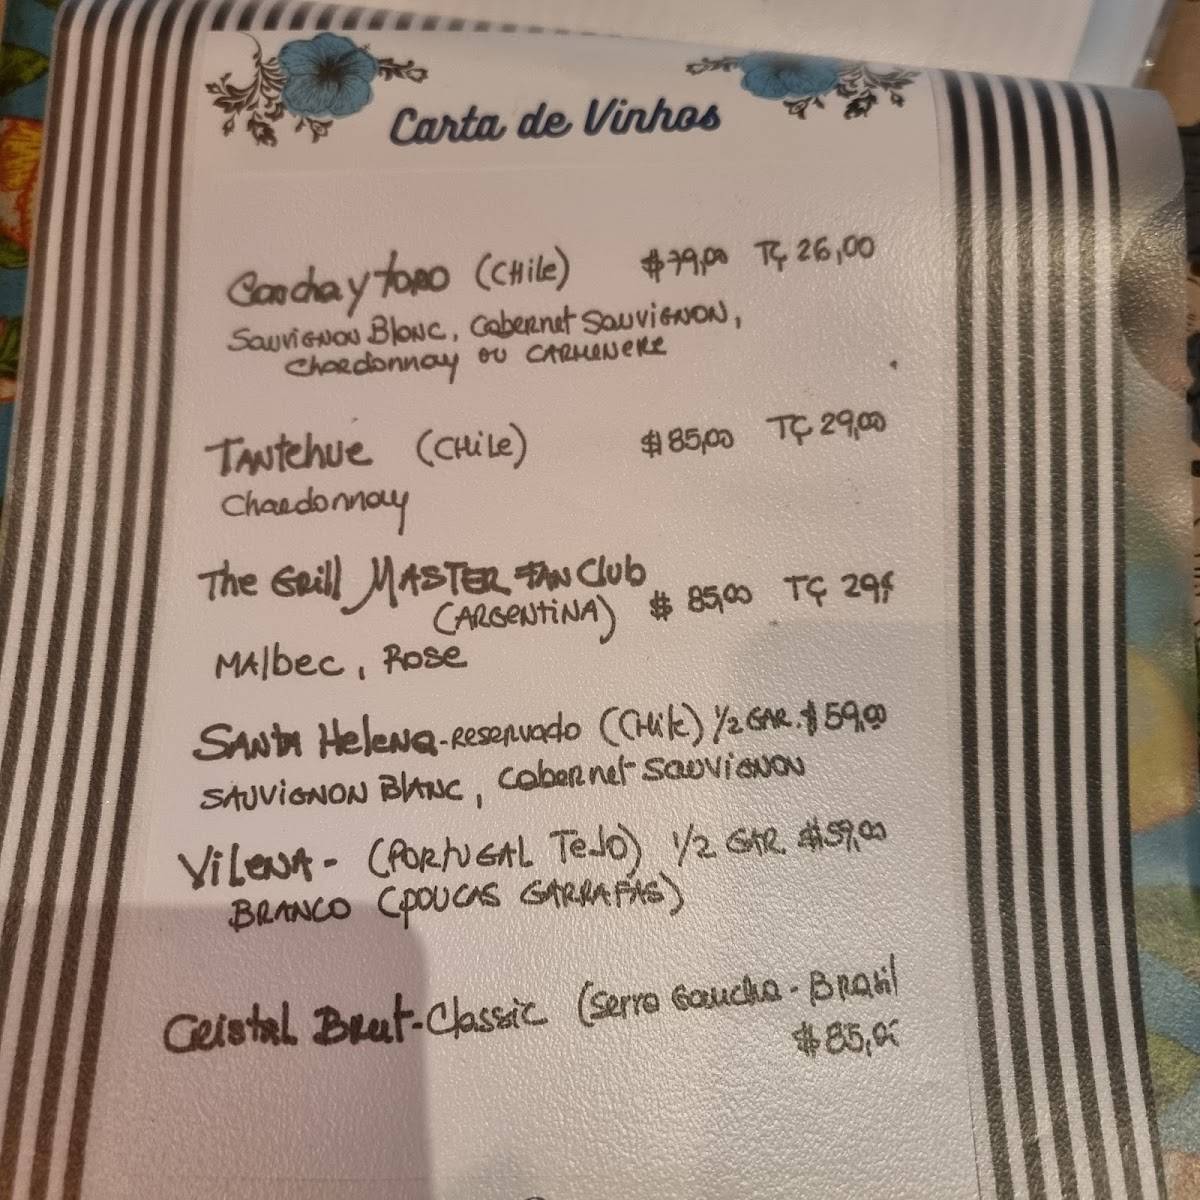 Carta de Vinhos
Concha y toro (CHile) $79,00 TÇ 26,00
Sauvignon Blanc, Cabernet Sauvignon,
Chardonnay ou CARMENERE
TANtehue (CHiLe) $85,00 TÇ 29,00
Chardonnay
The Grill MASTER FAN Club
(ARGENTINA) $ 85,00 TÇ 29,
MAlbec, Rose
SANta HeleNa-Reservado (CHile) 1/2 GAR. $59,00
SAUViGNON BlANC, Cabernet Sauvignon
ViLeNA - (PORTUGAL TeJO) 1/2 GAR. $59,00
BRANCO (POUCAS GARRAFAS)
Cristal Brut-Classic (Serra Gaucha - Brasil
$85,0